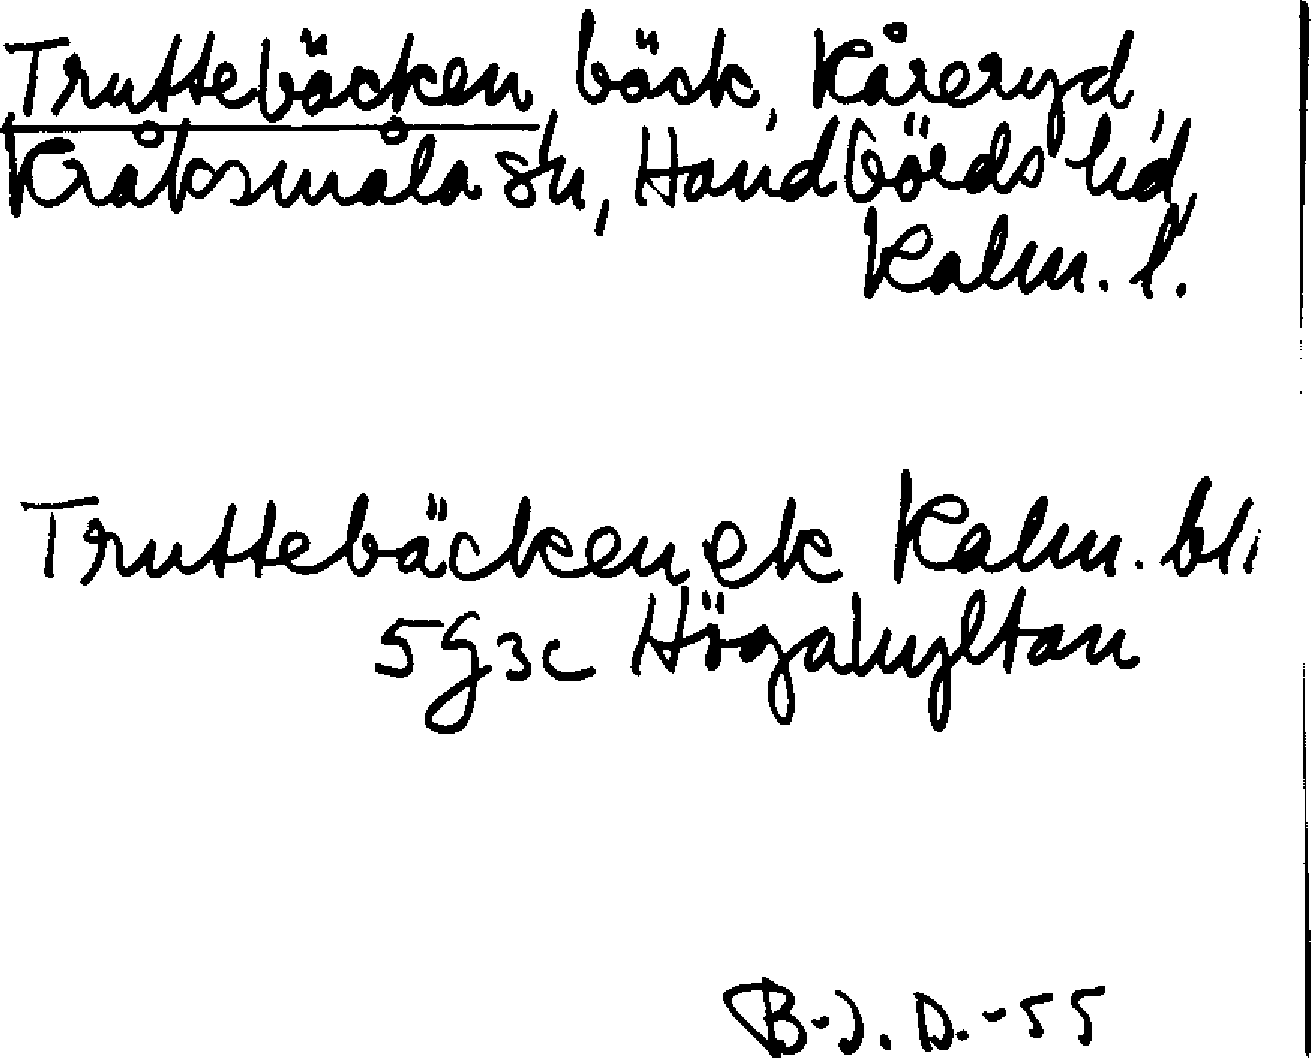 Truttebäcken, bäck, Kåreryd,
Kråksmåla sn, Handbörds hd,
Kalm. l.
Truttebäcken, ek Kalm. bl.
5g3c Högahyltan
B-J. D.-55